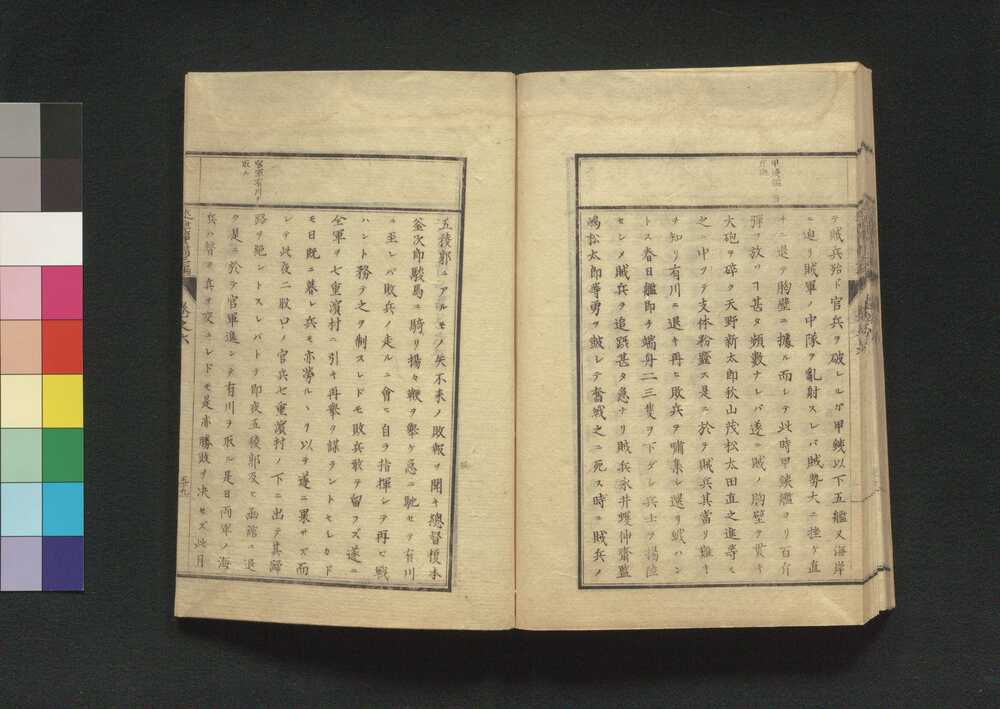 テ賊兵殆ド官兵ヲ破レルガ甲鉄以下五艦又海岸
ニ迫リ賊軍ノ中隊ヲ亂射スレバ賊勢大ニ挫ケ直
チニ退テ胸壁ニ據ル而レテ此時甲鉄艦ヨリ百斤
彈ヲ放ツヿ甚タ頻數ナレバ遂ニ賊ノ胸壁ヲ貫キ
大砲ヲ碎ク天野新太郎秋山茂松太田直之進等モ
之ニ中ツテ支体粉虀ス是ニ於テ賊兵其當リ難キ
ヲ知リ有川ニ退キ再ヒ敗兵ヲ嘯集レ還リ戰ハン
トス春日艦即チ端舟二三隻ヲ下ダレ兵士ヲ揚陸
セレメ賊兵ヲ追躡甚タ急ナリ賊兵永井蠖伸齋監
嶋松太郎等勇ヲ皷レテ奮戰之ニ死ス時ニ賊兵ノ
五稜郭ニアルモノ矢不來ノ敗報ヲ聞キ總督榎本
釜次郎駿馬ニ騎リ揚々鞭ヲ擧ケ急ニ馳セテ有川
ニ至レバ敗兵ノ走ルニ會ヒ自ラ指揮レテ再ヒ戰
ハント務テ之ヲ制スレドモ敗兵敢テ留フズ遂ニ
全軍ヲ七重濱村ニ引キ再擧ヲ謀ラントセレカド
モ日既ニ暮レ兵モ亦勞ルヽヲ以テ遂ニ果サズ而
レテ此夜二股口ノ官兵七重濱村ノ下ニ出テ其歸
路ヲ絶ントスレバトテ即夜五稜郭及ヒ函館ニ退
ク是ニ於テ官軍進ンテ有川ヲ取ル是日両軍ノ海
兵ハ皆ナ兵ヲ交ユレドモ是亦勝敗ヲ决セズ此月
官軍有川ヲ
取ル
卷之六
五十九